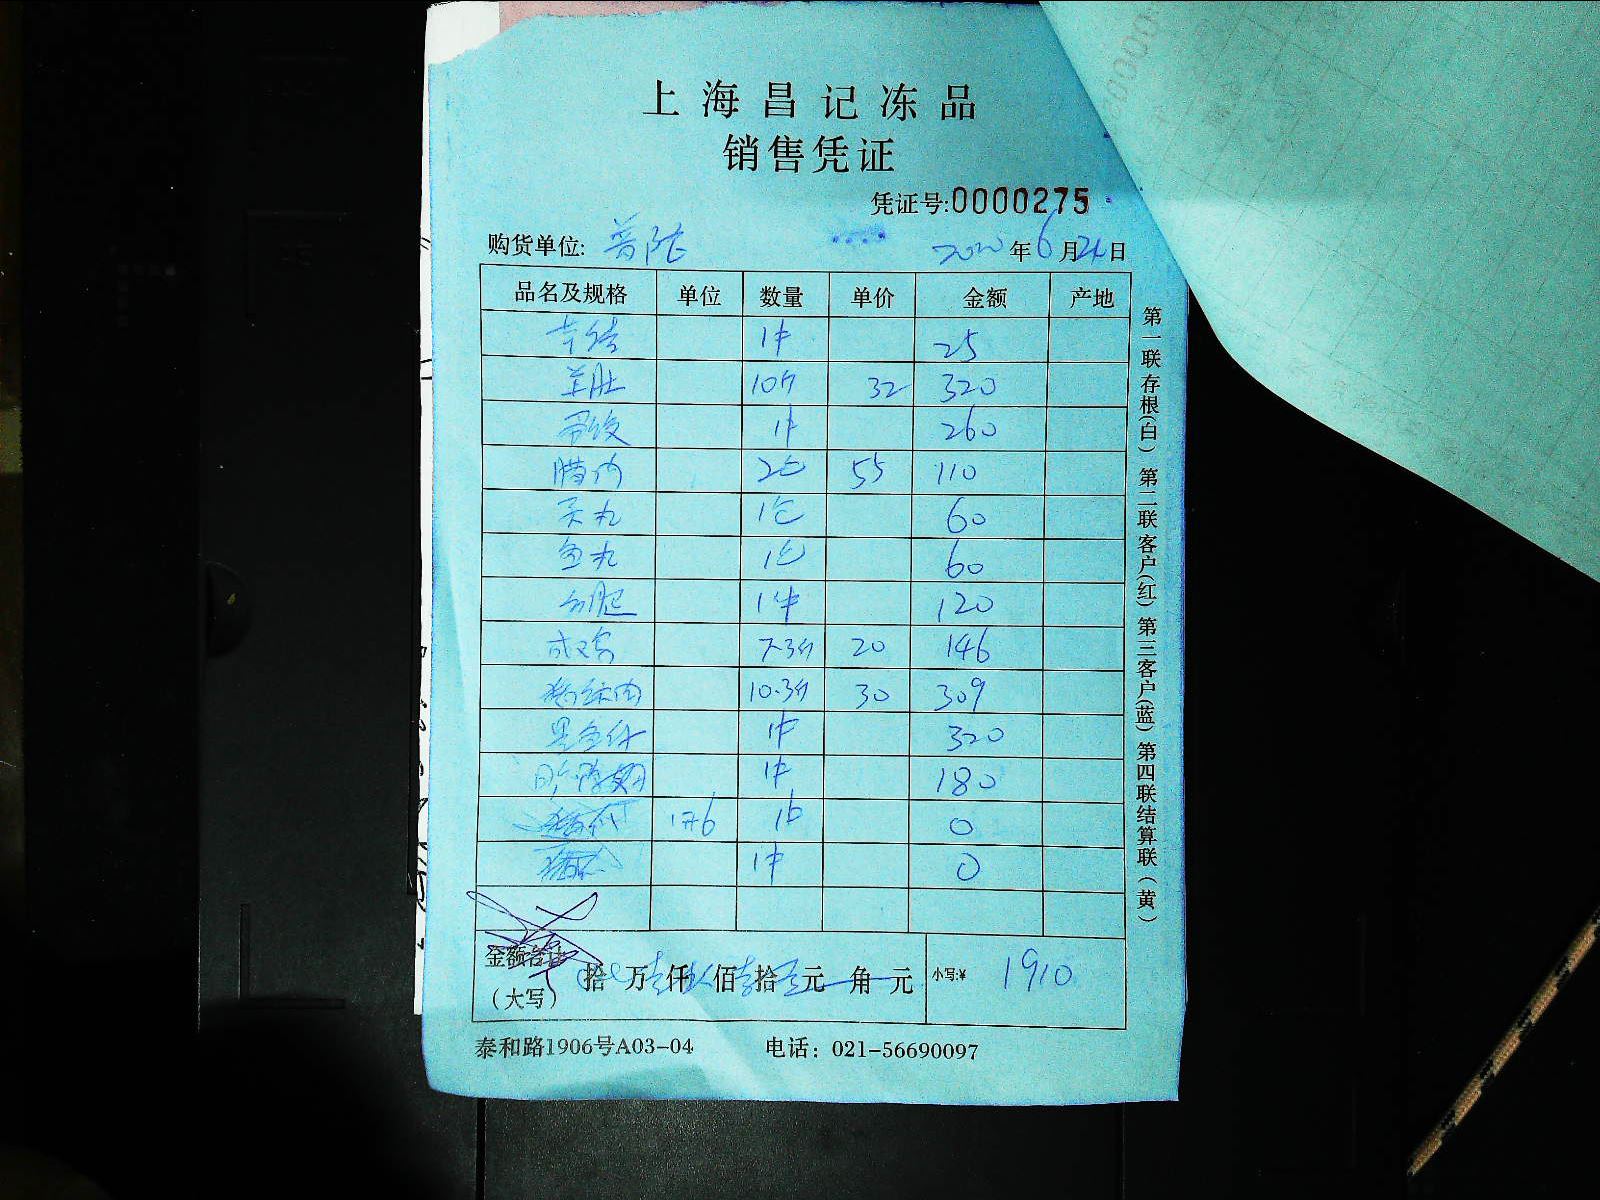 上海昌记冻品
销售凭证
凭证号:0000275
购货单位: 普陀 2020年6月21日
品名及规格 单位 数量 单价 金额 产地
1件 25
羊肚 10斤 32 320
1件 260
腊肉 2包 55 110
贡丸 1包 60
鱼丸 1包 60
1件 120
成鸡 7.3斤 20 146
10.3斤 30 309
黑鱼片 1件 320
1件 180
0
1件 0
金额合计
(大写) 拾 万 仟 佰 拾 元 角 元 小写:¥ 1910
泰和路1906号A03-04 电话: 021-56690097
第一联存根(白) 第二联客户(红) 第三客户(蓝) 第四联结算联(黄)